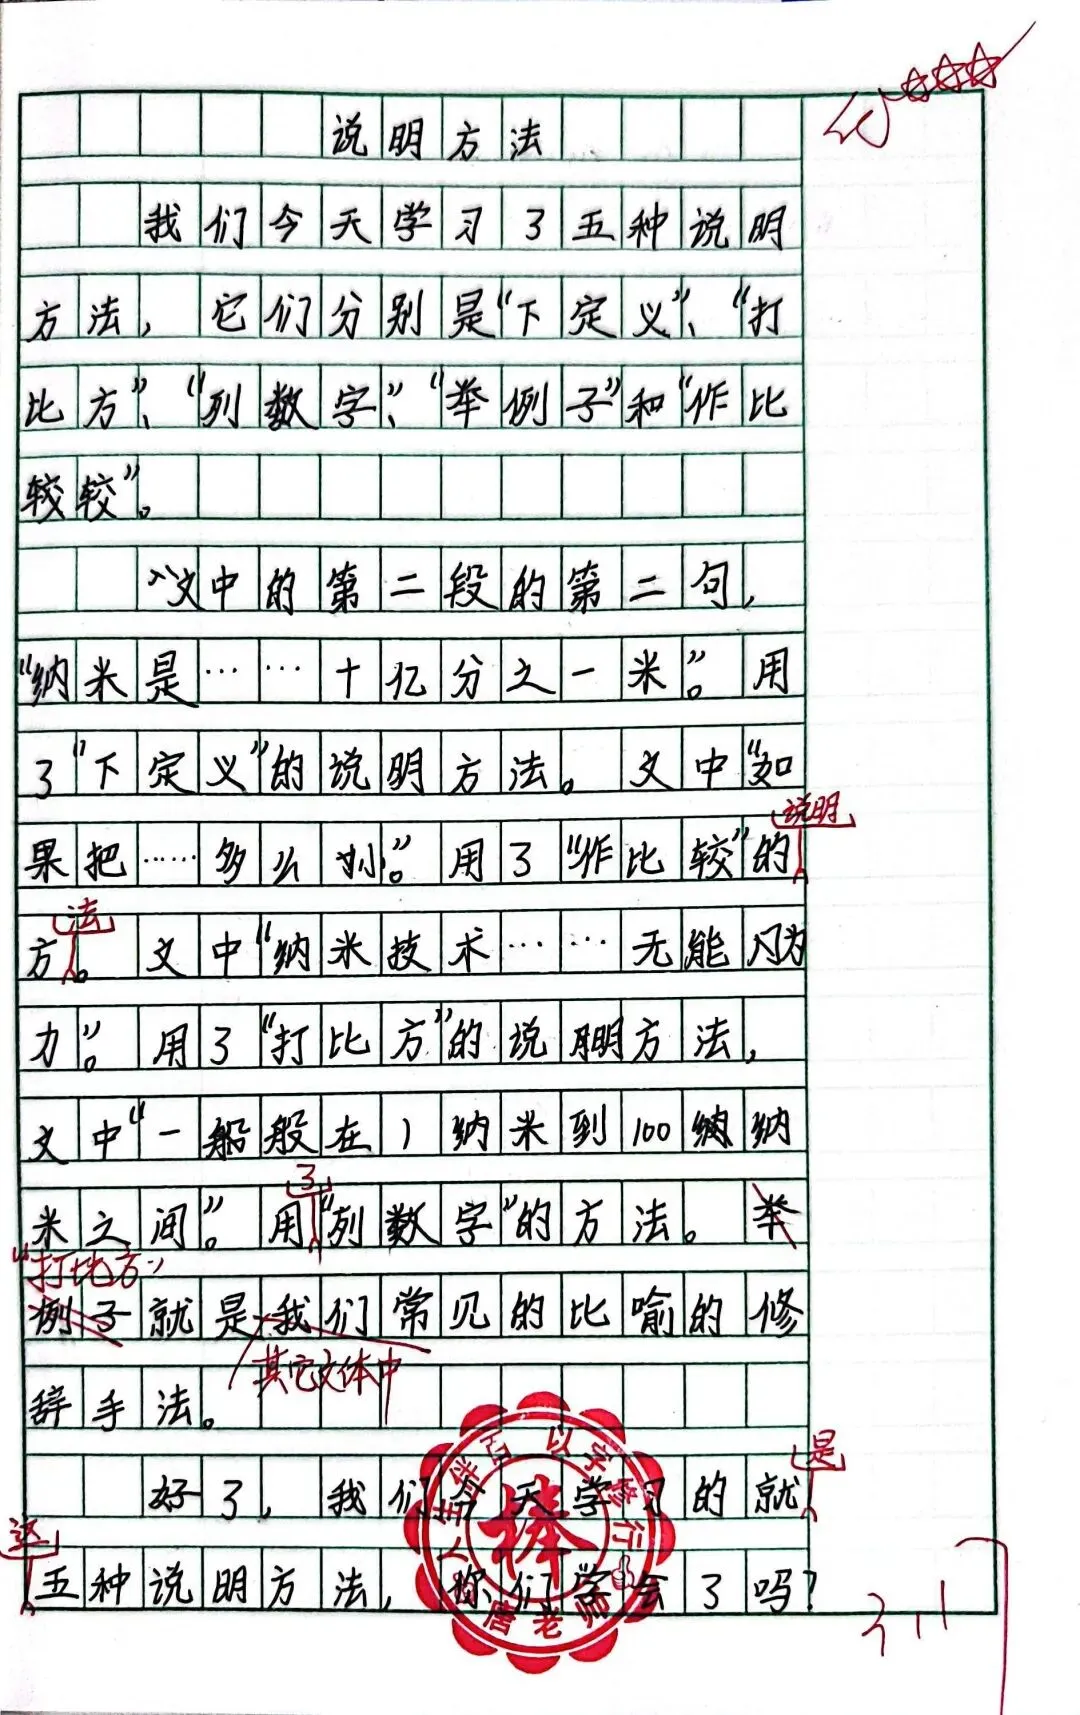 说明方法
我们今天学习了五种说明
方法，它们分别是“下定义”、“打
比方”、“列数字”、“举例子”和“作比
较较”。
文中的第二段的第二句，
“纳米是……十亿分之一米”。用
了“下定义”的说明方法。文中“如
说明
果把……多么小”。用了“作比较”的
法
方。文中“纳米技术……无能为
力”。用了“打比方”的说明方法，
文中“一般般在1纳米到100纳纳
了
米之间”。用“列数字”的方法。举
“打比方”
例子就是我们常见的比喻的修
其它文体中
辞手法。
是
好了，我们今天学习的就
这
五种说明方法，你们学会了吗？
3.11
棒
以字修行
唐老师